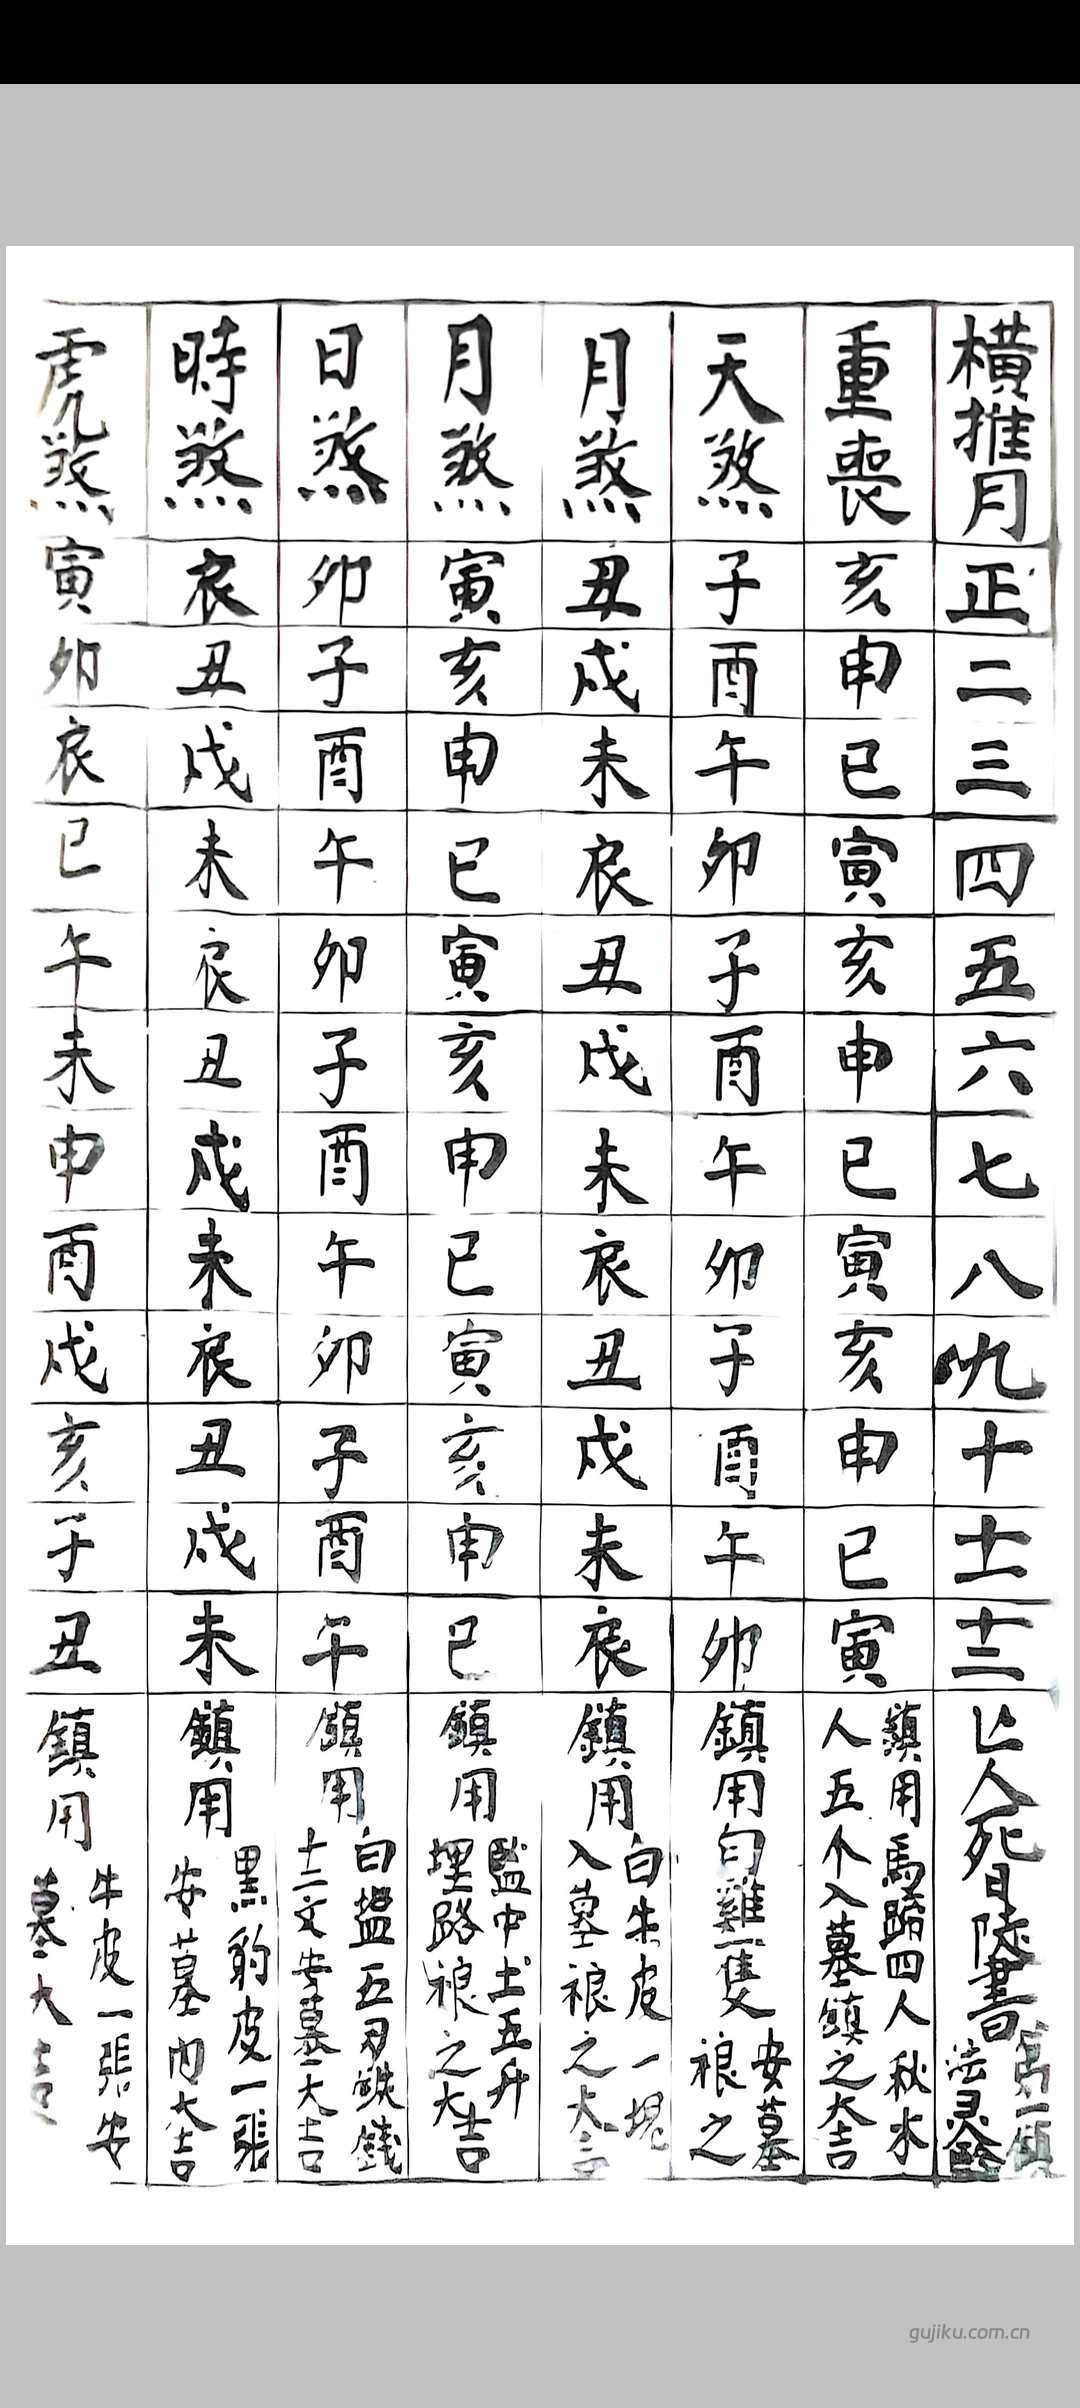 橫推月正二三四五六七八九十十一十二亡人死日陵書
重喪亥申巳寅亥申巳寅亥申巳寅
鎮用馬蹄四人秋木
人五个入墓鎮之大吉
天煞子酉午卯子酉午卯子酉午卯鎮用白雞一隻
安墓
裉之
月煞丑戌未辰丑戌未辰丑戌未辰鎮用
白牛皮一塊
入墓裉之大吉
月煞寅亥申巳寅亥申巳寅亥申巳鎮用
監中土五升
埋路裉之大吉
日煞卯子酉午卯子酉午卯子酉午鎮用
白塩五刃鉄錢
十二文安墓大吉
時煞辰丑戌未辰丑戌未辰丑戌未鎮用
黑豹皮一張
安墓内大吉
虎煞寅卯辰巳午未申酉戌亥子丑鎮用
牛皮一張安
墓大吉
gujiku.com.cn